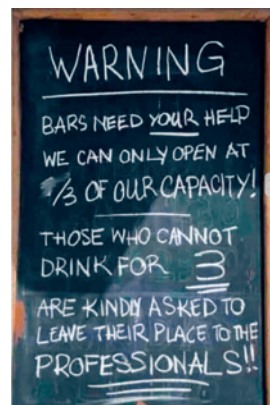 WARNING
BARS NEED YOUR HELP
WE CAN ONLY OPEN AT
1/3 OF OUR CAPACITY!
THOSE WHO CANNOT
DRINK FOR 3
ARE KINDLY ASKED TO
LEAVE THEIR PLACE TO THE
PROFESSIONALS!!